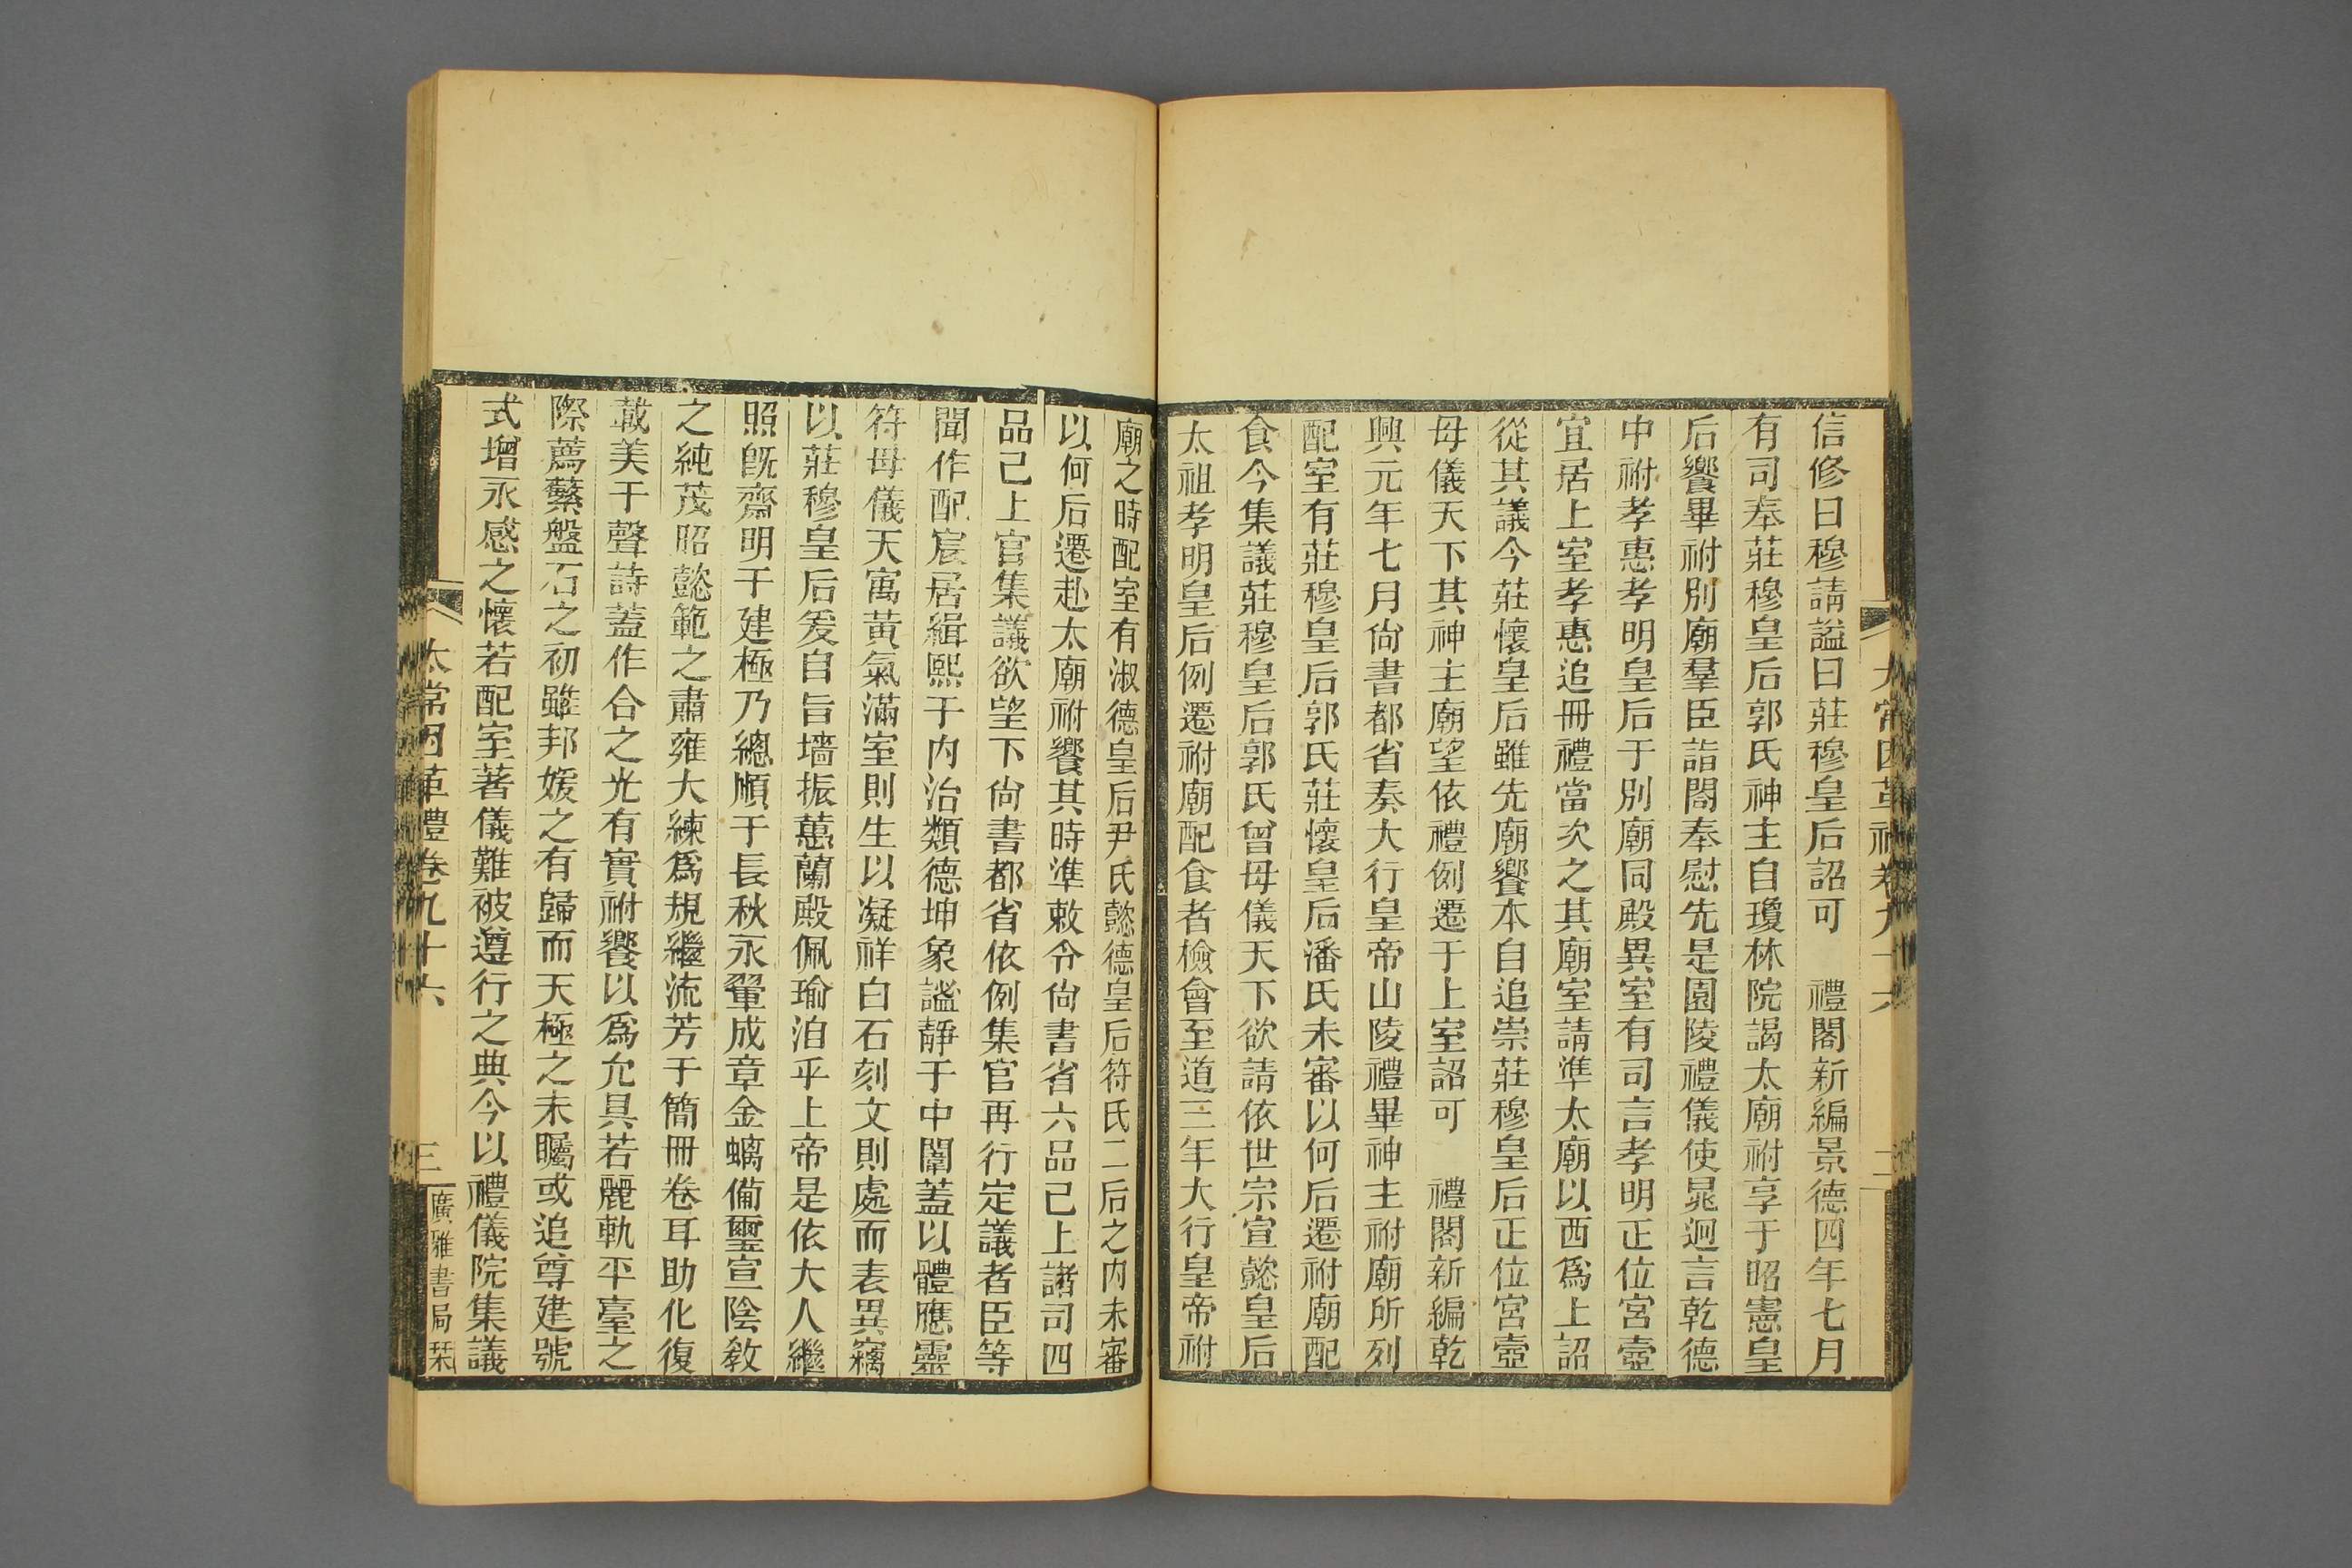 信修曰穆請謚曰莊穆皇后詔可　禮閣新編景德四年七月
有司奉莊穆皇后郭氏神主自瓊林院謁太廟祔享于昭憲皇
后饗畢祔別廟羣臣詣閤奉慰先是園陵禮儀使晁迥言乾德
中祔孝惠孝明皇后于別廟同殿異室有司言孝明正位宮壼
宜居上室孝惠追冊禮當次之其廟室請準太廟以西爲上詔
從其議今莊懷皇后雖先廟饗本自追崇莊穆皇后正位宮壼
母儀天下其神主廟望依禮例遷于上室詔可　禮閣新編乾
興元年七月尙書都省奏大行皇帝山陵禮畢神主祔廟所列
配室有莊穆皇后郭氏莊懷皇后潘氏未審以何后遷祔廟配
食今集議莊穆皇后郭氏曾母儀天下欲請依世宗宣懿皇后
太祖孝明皇后例遷祔廟配食者檢會至道三年大行皇帝祔
廟之時配室有淑德皇后尹氏懿德皇后符氏二后之內未審
以何后遷赴太廟祔饗其時準敕令尙書省六品己上諸司四
品己上官集議欲望下尙書都省依例集官再行定議者臣等
聞作配宸居緝熙于內治類德坤象謐靜于中闈蓋以體應靈
符母儀天寓黃氣滿室則生以凝祥白石刻文則處而表異竊
以莊穆皇后爰自旨墻振蕙蘭殿佩瑜洎乎上帝是依大人繼
照旣齋明于建極乃總順于長秋永翬成章金螭備璽宣陰敎
之純茂昭懿範之肅雍大練爲規繼流芳于簡冊卷耳助化復
載美于聲詩蓋作合之光有實祔饗以爲允具若麗軌平臺之
際薦蘩盤石之初雖邦媛之有歸而天極之未矚或追尊建號
式增永感之懷若配室著儀難被遵行之典今以禮儀院集議
太常因革禮卷九十六
三
廣雅書局栞